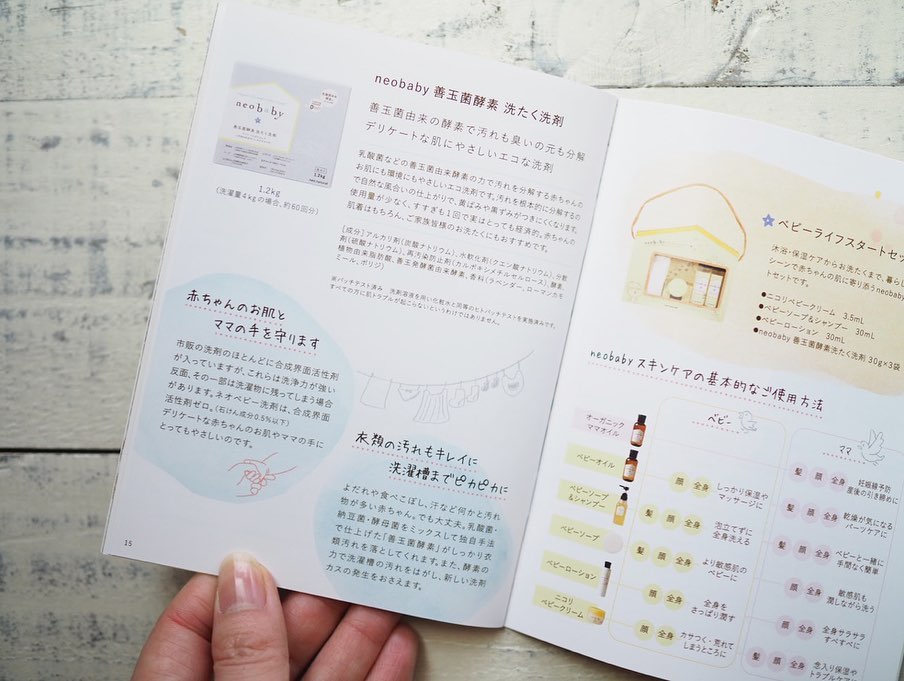 neobaby
善玉菌酵素 洗たく洗剤
1.2kg
1.2kg
(洗濯量4kgの場合、約60回分)
neobaby 善玉菌酵素 洗たく洗剤
善玉菌由来の酵素で汚れも臭いの元も分解
デリケートな肌にやさしいエコな洗剤
乳酸菌などの善玉菌由来酵素の力で汚れを分解する赤ちゃんの
お肌にも環境にもやさしいエコ洗剤です。汚れを根本的に分解するの
で自然な風合いの仕上がりで、黄ばみや黒ずみがつきにくくなります。
使用量が少なく、すすぎも1回で実はとっても経済的。赤ちゃんの
肌着はもちろん、ご家族皆様のお洗たくにもおすすめです。
[成分]アルカリ剤(炭酸ナトリウム)、水軟化剤(クエン酸ナトリウム)、分散
剤(硫酸ナトリウム)、再汚染防止剤(カルボキシメチルセルロース)、酵素、
植物由来脂肪酸、善玉発酵菌由来酵素、香料(ラベンダー、ローマンカモ
ミール、ボリジ)
※パッチテスト済み 洗剤溶液を用い化粧水と同等のヒトパッチテストを実施済みです。
すべての方に肌トラブルが起こらないというわけではありません。
赤ちゃんのお肌と
ママの手を守ります
市販の洗剤のほとんどに合成界面活性剤
が入っていますが、これらは洗浄力が強い
反面、その一部は洗濯物に残ってしまう場合
があります。ネオベビー洗剤は、合成界面
活性剤ゼロ。(石けん成分0.5%以下)
デリケートな赤ちゃんのお肌やママの手に
とってもやさしいのです。
衣類の汚れもキレイに
洗濯槽までピカピカに
よだれや食べこぼし、汗など何かと汚れ
物が多い赤ちゃん。でも大丈夫。乳酸菌・
納豆菌・酵母菌をミックスして独自手法
で仕上げた「善玉菌酵素」がしっかり衣
類汚れを落としてくれます。また、酵素の
力で洗濯槽の汚れをはがし、新しい洗剤
カスの発生をおさえます。
15
ベビーライフスタートセッ
沐浴・保湿ケアからお洗たくまで、暮らし
シーンで赤ちゃんの肌に寄り添うneobaby
トセットです。
●ニコリベビークリーム 3.5mL
●ベビーソープ&シャンプー 30mL
●ベビーローション 30mL
●neobaby 善玉菌酵素洗たく洗剤 30g×3袋
neobaby スキンケアの基本的なご使用方法
ベビー
ママ
オーガニック
ママオイル
髪 顔 全身
妊娠線予防
産後の引き締めに
ベビーオイル
顔 全身
しっかり保湿や
マッサージに
髪 顔 全身
乾燥が気になる
パーツケアに
ベビーソープ
&シャンプー
髪 顔 全身
泡立てずに
全身洗える
髪 顔 全身
ベビーと一緒に
手間なく簡単
ベビーソープ
髪 顔 全身
より敏感肌の
ベビーに
顔 全身
敏感肌も
潤しながら洗う
ベビーローション
顔 全身
全身を
さっぱり潤す
髪 顔 全身
全身サラサラ
すべすべに
ニコリ
ベビークリーム
顔 全身
カサつく・荒れて
しまうところに
髪 顔 全身
念入り保湿や
トラブルケアに